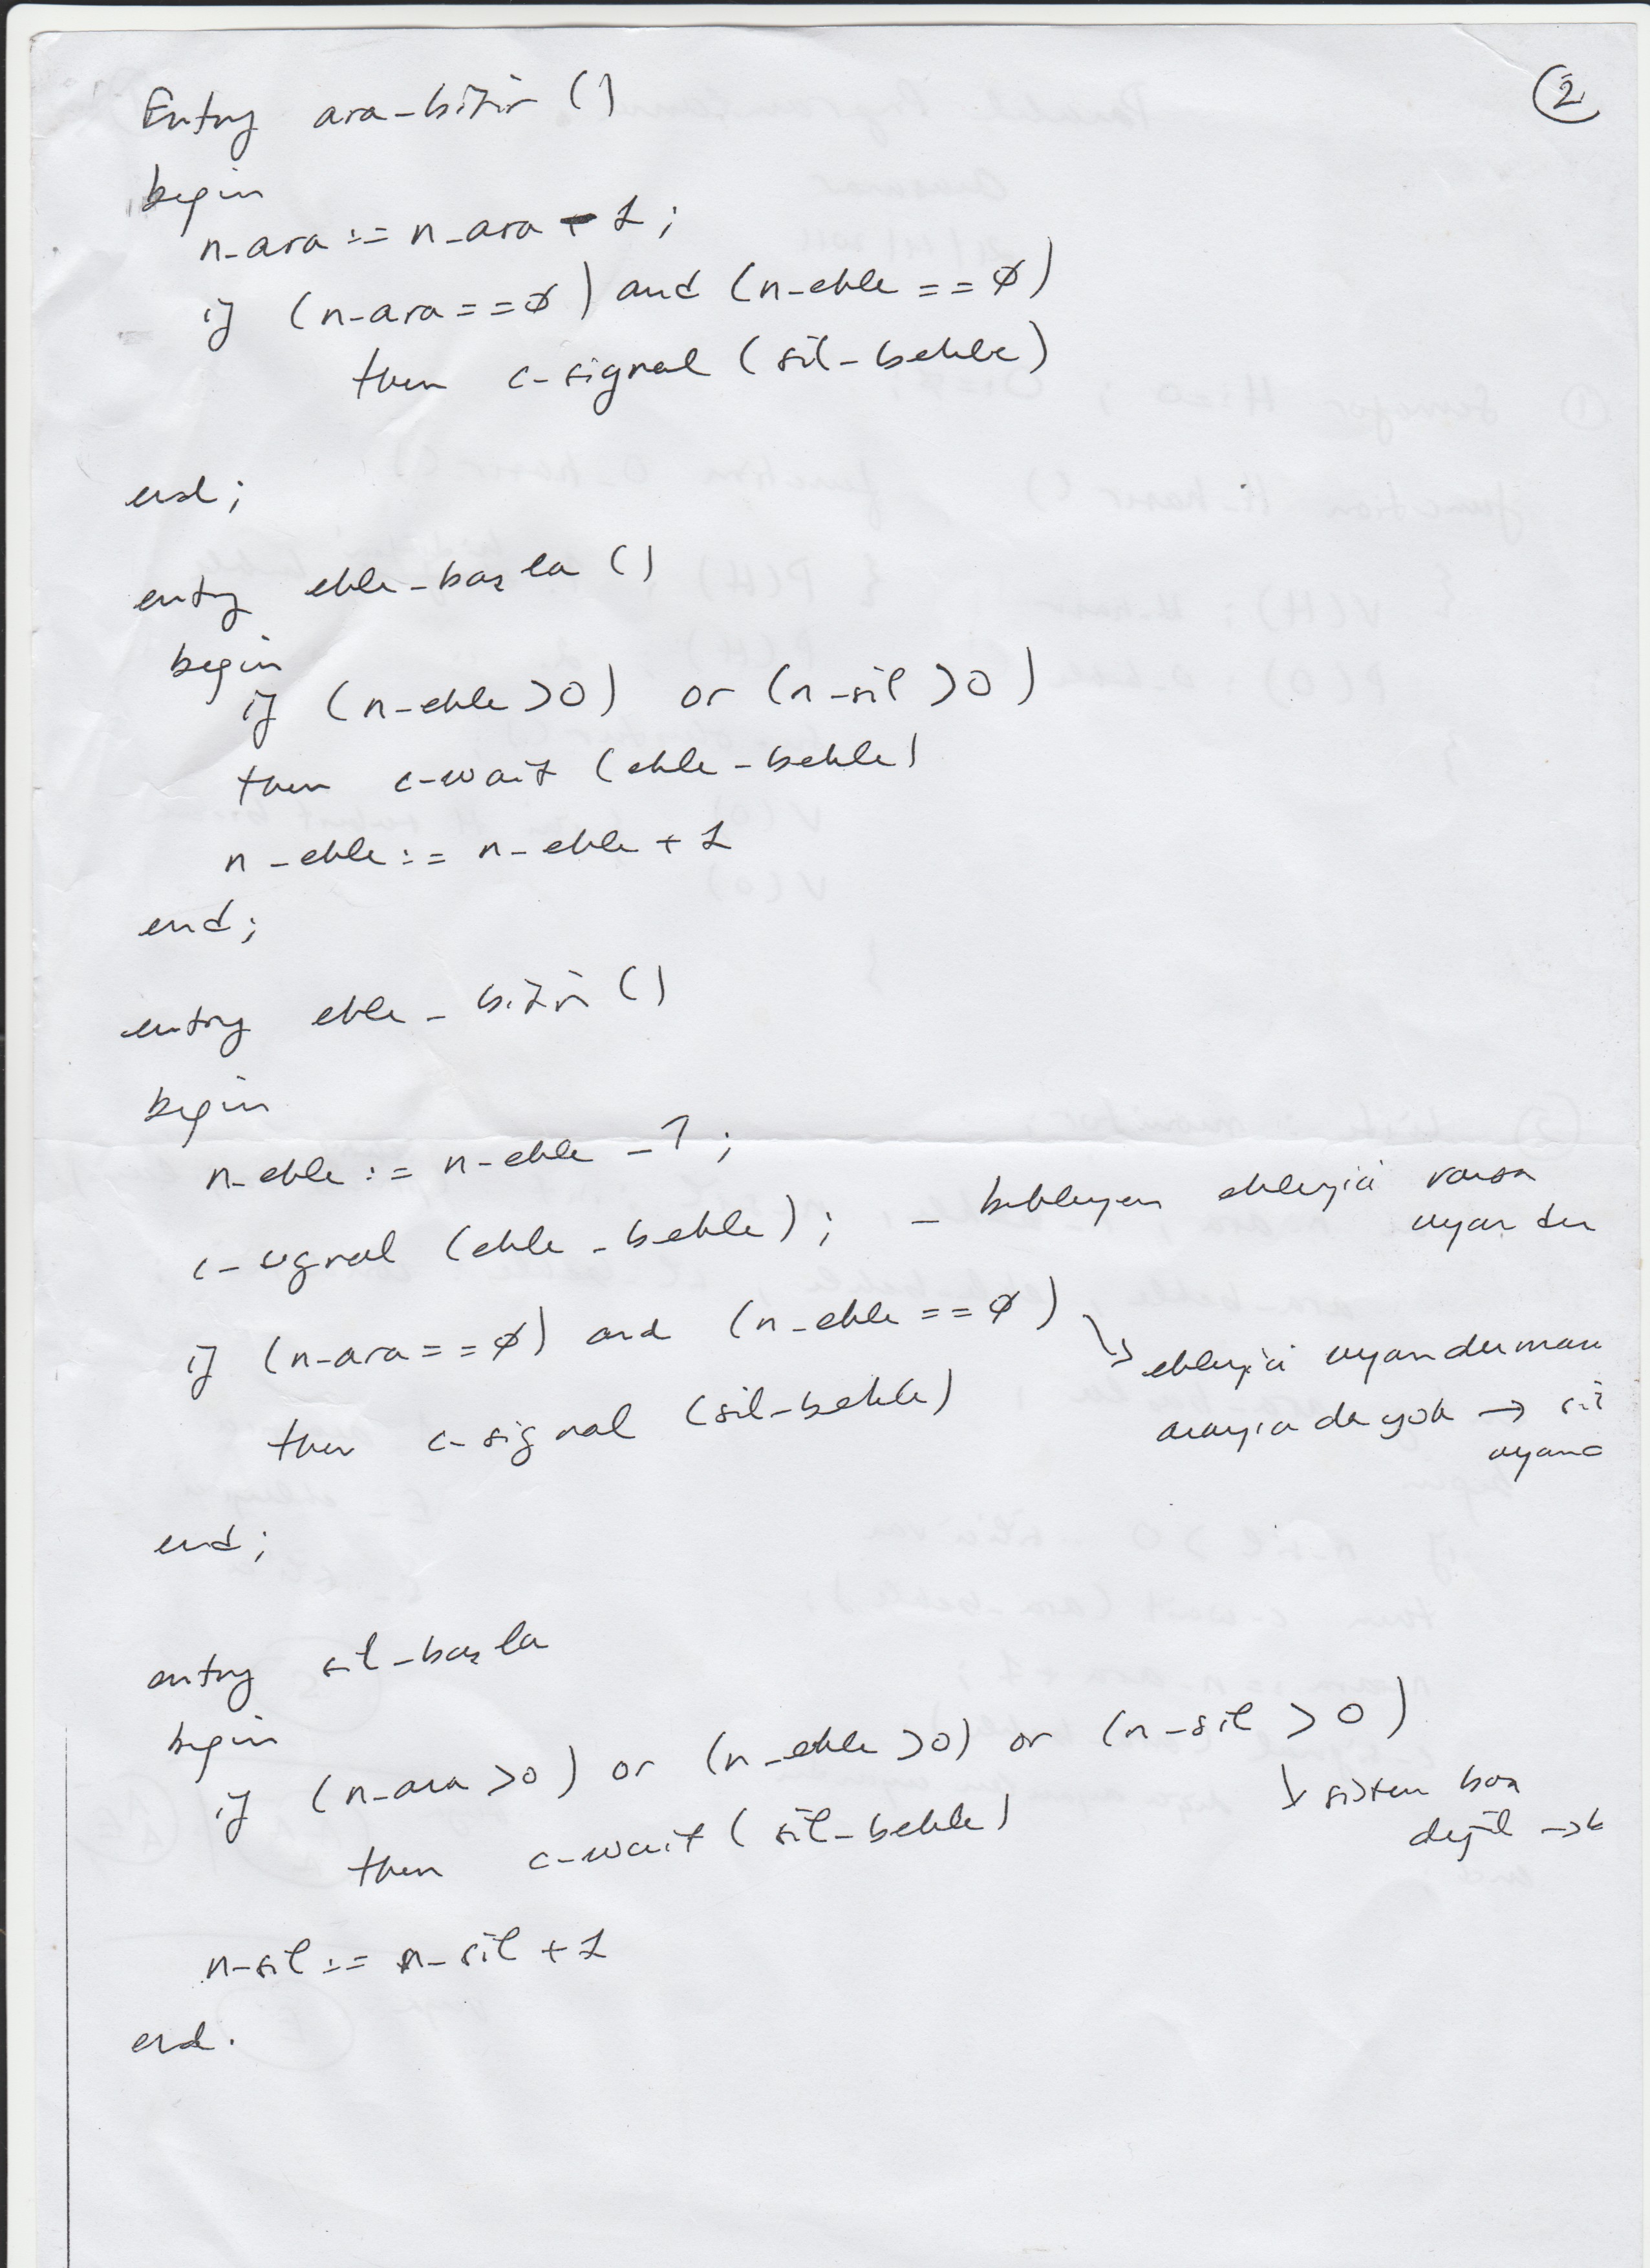 2
Entry ara-bitir ()
begin
n-ara := n-ara - 1;
if (n-ara==0) and (n-ekle == 0)
then c-signal (sil-bekle)
end;
entry ekle-başla ()
begin
if (n-ekle >0) or (n-sil >0)
then c-wait (ekle-bekle)
n-ekle := n-ekle + 1
end;
entry ekle-bitir ()
begin
n-ekle := n-ekle -1;
c-signal (ekle-bekle); - bekleyen ekleyici varsa
uyandır
if (n-ara==0) and (n-ekle ==0)
ekleyici uyandırmamı
then c-signal (sil-bekle)
arayıcı da yok → sil
uyand
end;
entry sil-başla
begin
if (n-ara >0) or (n-ekle >0) or (n-sil >0)
sistem boş
değil →b
then c-wait (sil-bekle)
n-sil := n-sil +1
end.